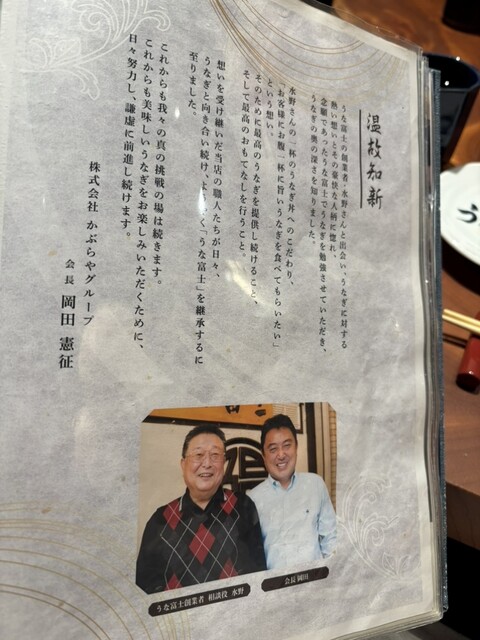 温故知新
うな富士の創業者・水野さんと出会い、うなぎに対する
熱い想いとその豪快な人柄に惚れ
念願であったうな富士でうなぎを勉強させていただき、
うなぎの奥の深さを知りました。
水野さんの一杯のうなぎ丼へのこだわり、
「お客様にお腹一杯に旨いうなぎを食べてもらいたい」
という想い、
そのために最高のうなぎを提供し続けること、
そして最高のおもてなしを行うこと。
想いを受け継いだ当店の職人たちが日々、
うなぎと向き合い続け、よ く「うな富士」を継承するに
至りました。
これからも我々の真の挑戦の場は続きます。
これからも美味しいうなぎをお楽しみいただくために、
日々努力し、謙虚に前進し続けます。
株式会社 かぶらやグループ
会長 岡田 憲征
うな富士創業者 相談役 水野
会長 岡田
う